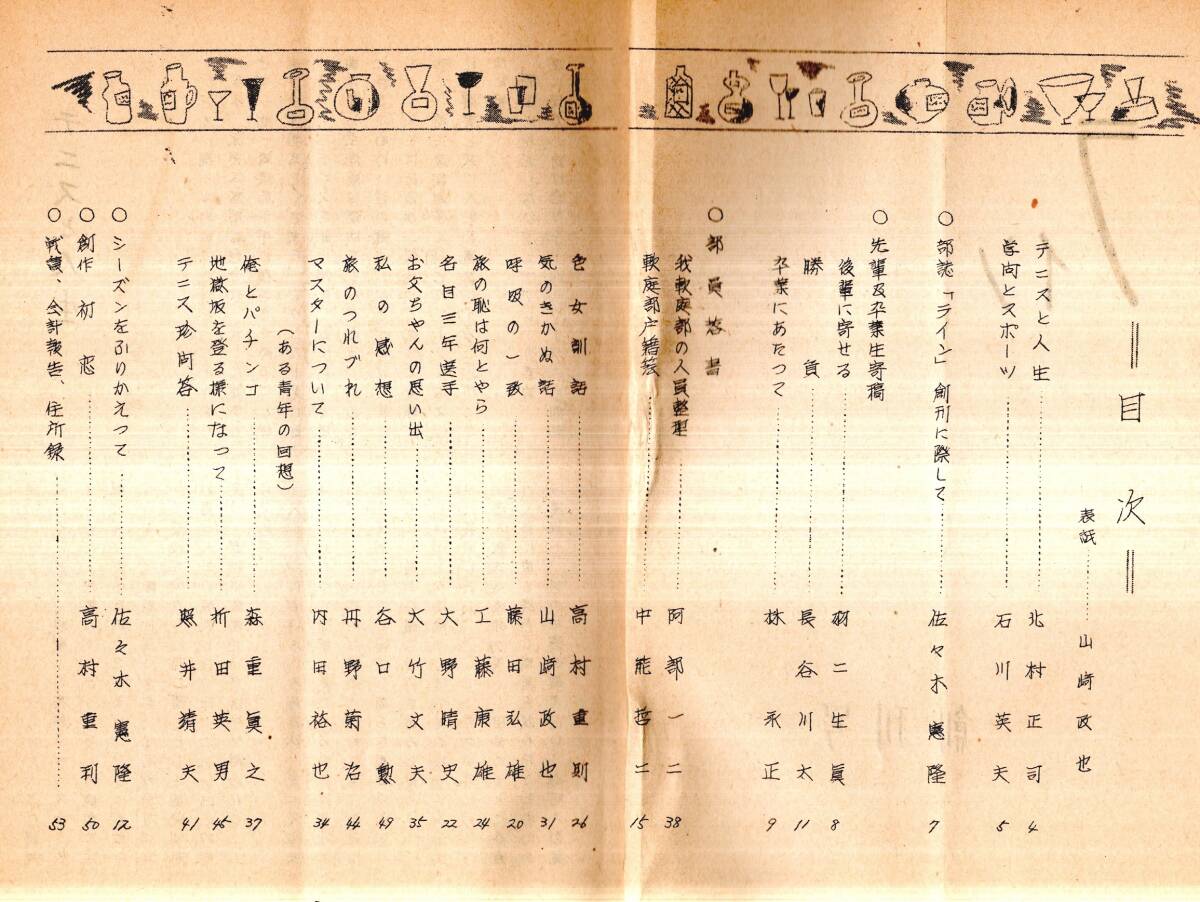 ＝目次＝
表誌……山崎政也
テニスと人生……北村正司 4
学问とスポーツ……石川英夫 5
○部誌「ライン」創刊に際して……佐々木憲隆 7
○先輩及卒業生寄稿
後輩に寄せる……羽二生眞 8
勝負……長谷川太 11
卒業にあたって……林永正 9
○部員落書
我軟庭部の人員整理……阿部一二 38
軟庭部戸籍簽……中熊哲二 15
色女訓話……高村重則 26
気のきかぬ話……山崎政也 31
呼吸の一致……藤田弘雄 20
旅の恥は何とやら……工藤康雄 24
名目三年選手……大野晴史 22
お父ちゃんの思い出……大竹文夫 35
私の感想……谷口勲 49
旅のつれづれ……丹野菊治 44
マスターについて……内田裕也 34
（ある青年の回想）
俺とパチンコ……森重眞之 37
地獄坂を登る様になって……折田英男 45
テニス珍问答……照井猪夫 41
○シーズンをふりかえって……佐々木憲隆 12
○創作 初恋……高村重利 50
○戦績、会計報告、住所録……53